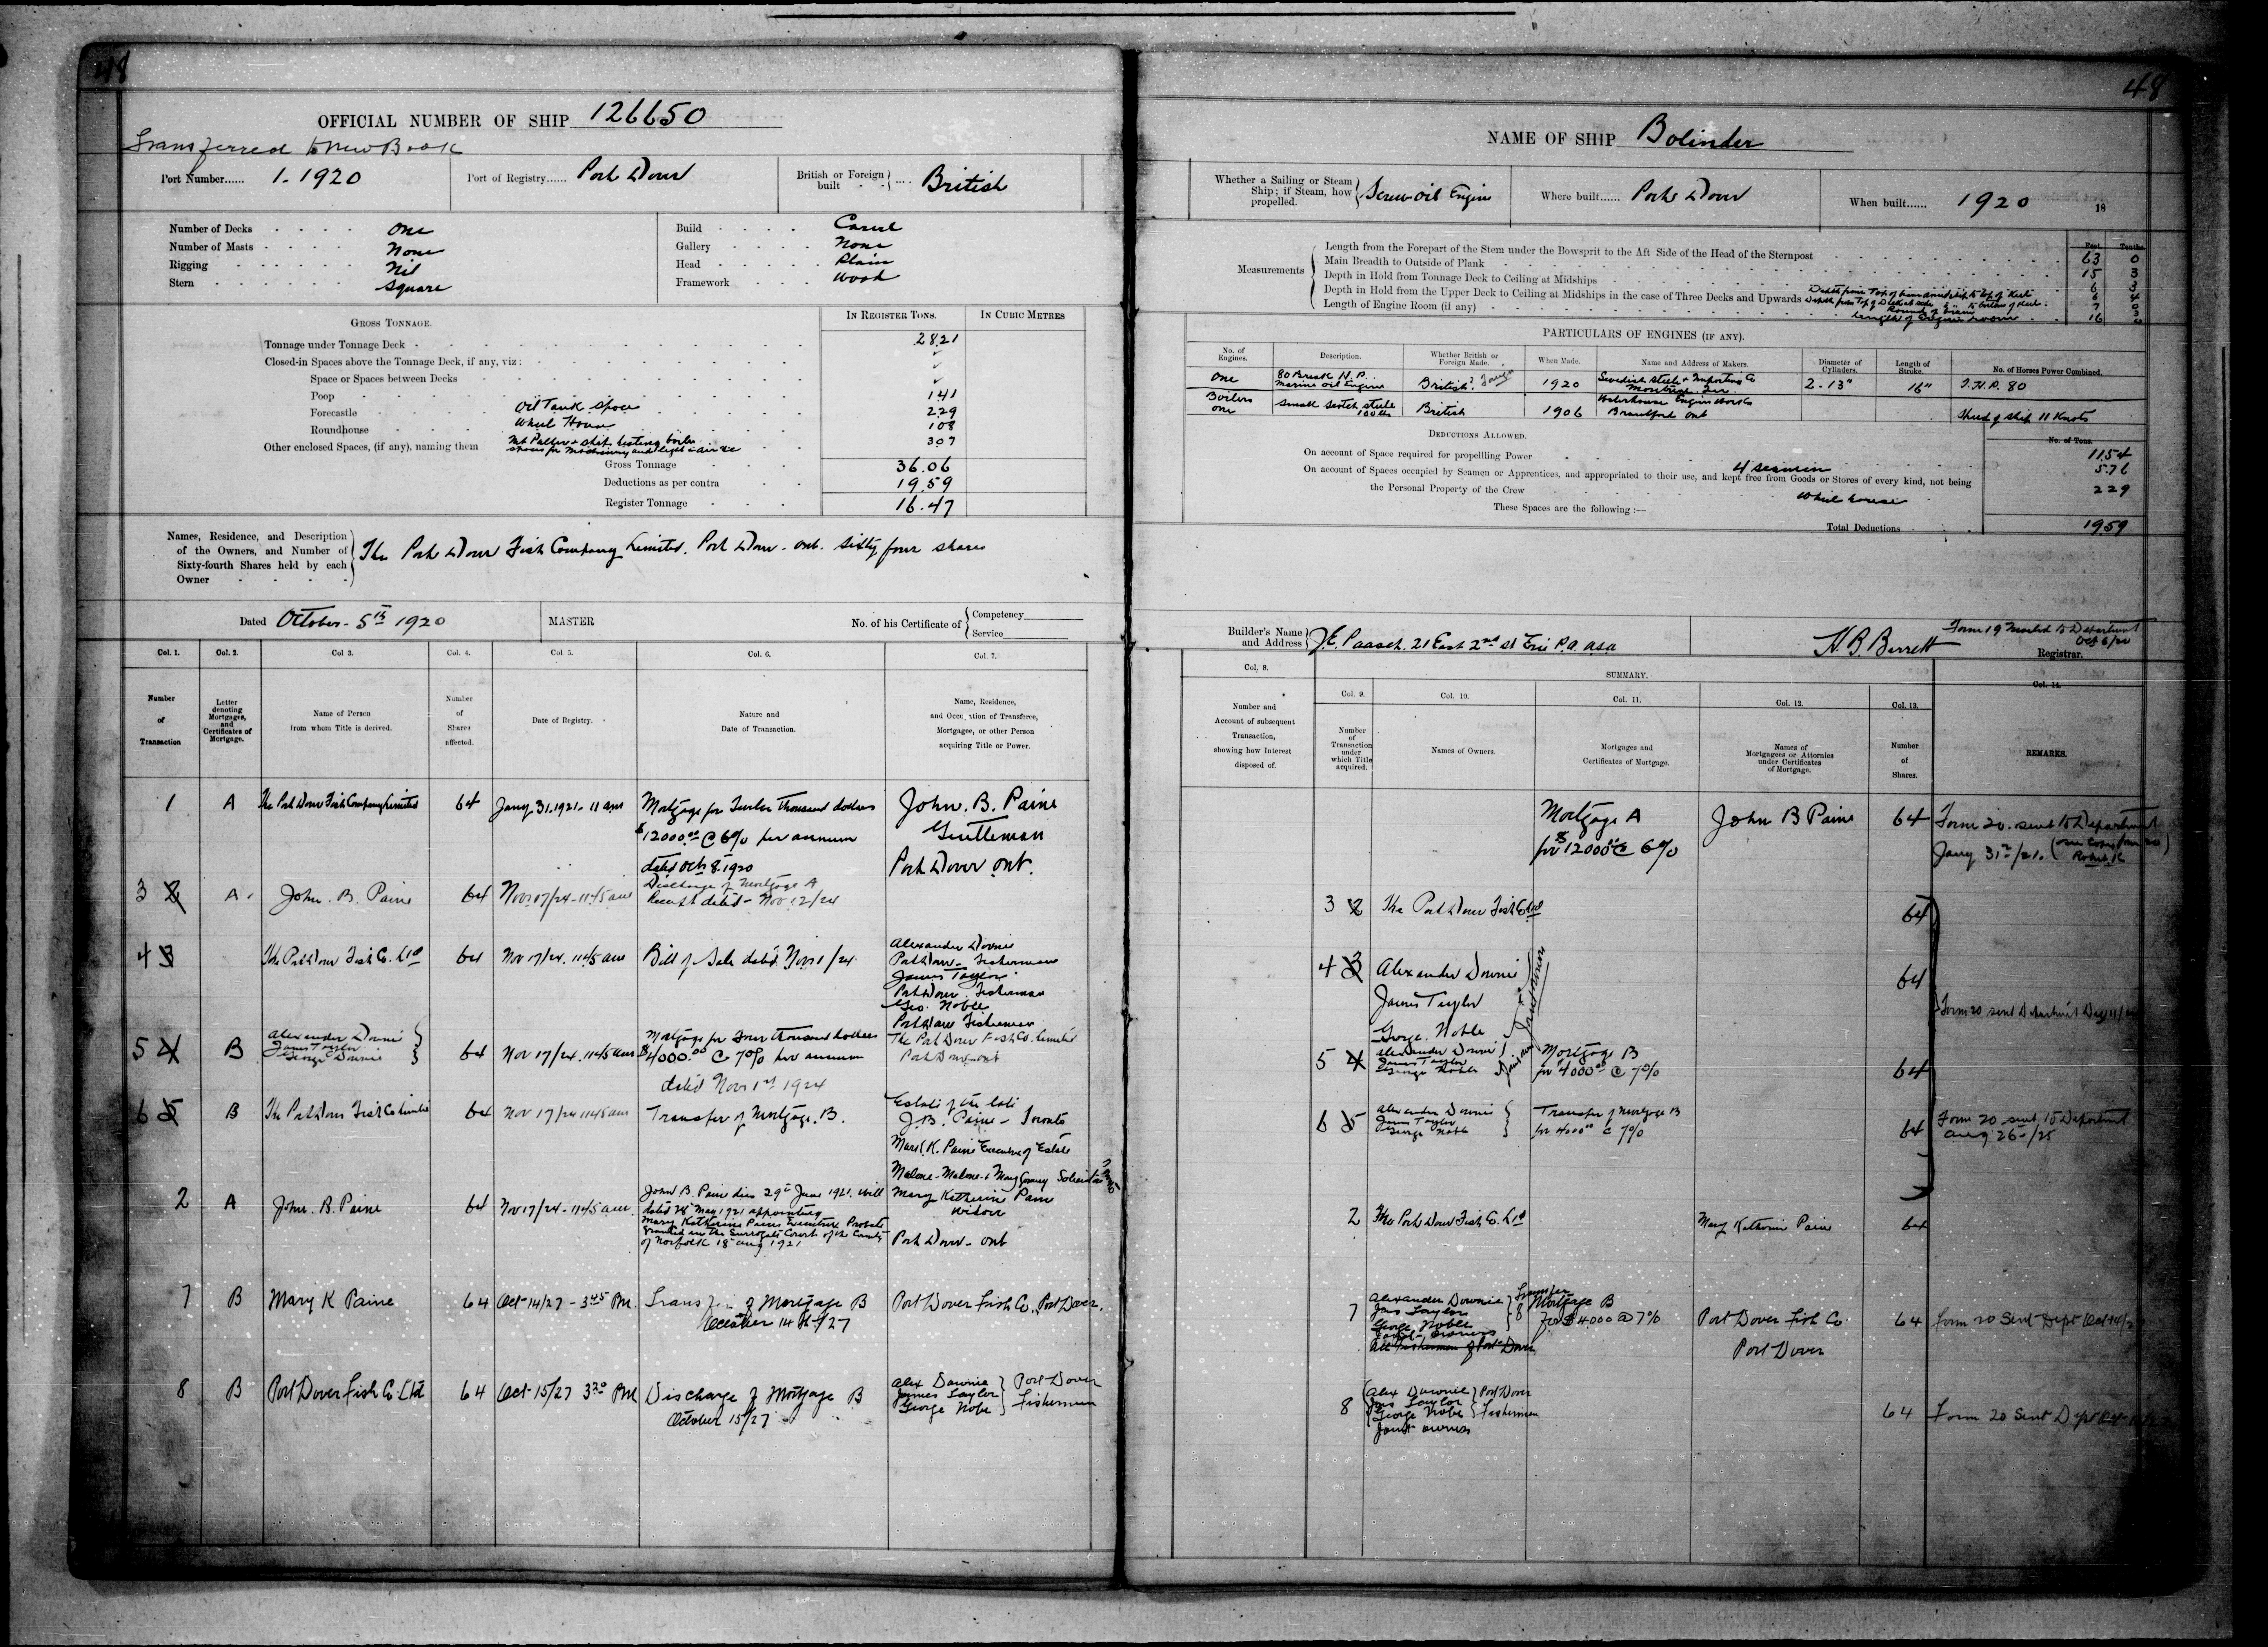 48
OFFICIAL NUMBER OF SHIP 126650
Transferred to New Book
Port Number...... 1. 1920
Port of Registry...... Port Dover
British or Foreign built - - .... British
Number of Decks - - - - One
Number of Masts - - - - None
Rigging - - - - Nil
Stern - - - - Square
Build - - - - Carvel
Gallery - - - - None
Head - - - - Plain
Framework - - - - Wood
GROSS TONNAGE.
IN REGISTER TONS.
IN CUBIC METRES
Tonnage under Tonnage Deck - 28.21
Closed-in Spaces above the Tonnage Deck, if any, viz:
Space or Spaces between Decks
Poop 141
Forecastle Oil Tank Space 229
Roundhouse Wheel House 108
Other enclosed Spaces, (if any), naming them 307
spaces for machinery and light & air &c
Gross Tonnage 36.06
Deductions as per contra 19.59
Register Tonnage 16.47
Names, Residence, and Description
of the Owners, and Number of
Sixty-fourth Shares held by each
Owner
The Port Dover Fish Company Limited. Port Dover. Ont. Sixty four shares
Dated October. 5th 1920
MASTER
No. of his Certificate of
Competency
Service
Col. 1.
Number
of
Transaction
Col. 2.
Letter
denoting
Mortgages,
and
Certificates of
Mortgage.
Col 3.
Name of Person
from whom Title is derived.
Col. 4.
Number
of
Shares
affected.
Col. 5.
Date of Registry.
Col. 6.
Nature and
Date of Transaction.
Col. 7.
Name, Residence,
and Occupation of Transferee,
Mortgagee, or other Person
acquiring Title or Power.
1 A The Port Dover Fish Company Limited 64 Jany 31. 1921. 11 am
Mortgage for Twelve thousand dollars
$12000.00 @ 6% per annum
dated Oct 8. 1920
John. B. Paine
Gentleman
Port Dover Ont.
3 2 A. John. B. Paine 64 Nov 17/24 - 11.45 am
Discharge of Mortgage A
Receipt dated - Nov 12/24
4 3 The Port Dover Fish Co. Ltd 64 Nov 17/24. 11.45 am Bill of Sale dated Nov 1/24
Alexander Downie
Port Dover - Fisherman
James Taylor
Port Dover. Fisherman
Geo. Noble
Port Dover Fisherman
5 4 B
Alexander Downie
James Taylor
George Downie
64 Nov 17/24. 11.45 am
Mortgage for Four thousand dollars
$4000.00 @ 7% per annum
dated Nov 1st 1924
The Port Dover Fish Co. Limited
Port Dover - ont
6 5 B The Port Dover Fish Co Limited 64 Nov 17/24 11.45 am Transfer of Mortgage. B.
Estate of the late
J. B. Paine - Toronto
Mary K. Paine Executrix of Estate
Malone - Malone & Solicitors
2 A John. B. Paine 64 Nov 17/24 - 11.45 am.
John B. Paine died 29th June 1921. Will
dated 28 May 1921 appointing
Mary Katherine Paine Executrix Probate
granted in the Surrogate Court of the County
of Norfolk 18 Aug 1921
Mary Katherine Paine
Widow
Port Dover - Ont
7 B Mary K Paine 64 Oct 14/27 - 3.45 PM.
Transfer of Mortgage B
October 14th/27
Port Dover Fish Co. Port Dover.
8 B Port Dover Fish Co. Ltd 64 Oct 15/27 3.30 PM
Discharge of Mortgage B
October 15/27
Alex Downie
James Taylor
George Nobe
Port Dover
Fishermen
48
NAME OF SHIP Bolinder
Whether a Sailing or Steam
Ship; if Steam, how
propelled.
Screw Oil Engine
Where built...... Port Dover
When built...... 1920 18
Measurements
Feet. Tenths
Length from the Forepart of the Stem under the Bowsprit to the Aft Side of the Head of the Sternpost 63 0
Main Breadth to Outside of Plank 15 3
Depth in Hold from Tonnage Deck to Ceiling at Midships 6 3
Depth in Hold from the Upper Deck to Ceiling at Midships in the case of Three Decks and Upwards
Length of Engine Room (if any)
Depth from Top of beam amidship to top of keel 6 4
Depth from Top of Deck at side to bottom of keel 7 0
Round of Beam
Length of Engine room 16
PARTICULARS OF ENGINES (IF ANY).
No. of
Engines.
Description.
Whether British or
Foreign Made.
When Made.
Name and Address of Makers.
Diameter of
Cylinders.
Length of
Stroke.
No. of Horses Power Combined.
One
80 Break H.P.
Marine Oil Engine
British? Foreign
1920
Swedish Steel & Importing Co
Montreal
2 - 13"
16"
I.H.P. 80
Boilers
one
Small Scotch Steel
100 lbs
British
1906
Waterhouse Engine Works Co
Brantford Ont
Speed of ship 11 Knots
DEDUCTIONS ALLOWED.
No. of Tons.
On account of Space required for propelling Power 11.54
On account of Spaces occupied by Seamen or Apprentices, and appropriated to their use, and kept free from Goods or Stores of every kind, not being
the Personal Property of the Crew
4 seamen 576
These Spaces are the following :—
Wheel house 229
Total Deductions 19.59
Builder's Name
and Address
J. E. Paasch. 21 East 2nd St Erie P.a. USA
H. B. Barrett
Registrar.
Form 19 Mailed to Department
Oct 6/20
Col. 8.
Number and
Account of subsequent
Transaction,
showing how Interest
disposed of.
SUMMARY.
Col. 9.
Number
of
Transaction
under
which Title
acquired.
Col. 10.
Names of Owners.
Col. 11.
Mortgages and
Certificates of Mortgage.
Col. 12.
Names of
Mortgagees or Attornies
under Certificates
of Mortgage.
Col. 13.
Number
of
Shares.
Col. 14.
REMARKS.
Mortgage A
for $12000.00 @ 6%
John B Paine 64
Form 20. sent to Department
Jany 31st/21.
3 2 The Port Dover Fish Co Ltd 64
4 3 Alexander Downie
James Taylor
George. Noble
Joint owners
64
Form 20 sent Department
5 4
Alexander Downie
James Taylor
George Noble
Joint
Mortgage B
for $4000.00 @ 7%
64
6 5
Alexander Downie
James Taylor
George Noble
Transfer of Mortgage B
for 4000.00 @ 7%
64
Form 20 sent to Department
Aug 26 - /25
2 The Port Dover Fish Co. Ltd Mary Katherine Paine 64
7
Alexander Downie
Jas Taylor
George Noble
Joint Owners
All Fishermen of Port Dover
8
Transfer
Mortgage B
for $4000 @ 7%
Port Dover Fish Co
Port Dover
64 Form 20 Sent Dept Oct 14/2
8
Alex Downie
Jas Taylor
George Nobe
Joint owners
Port Dover
Fishermen
64 Form 20 Sent Dept